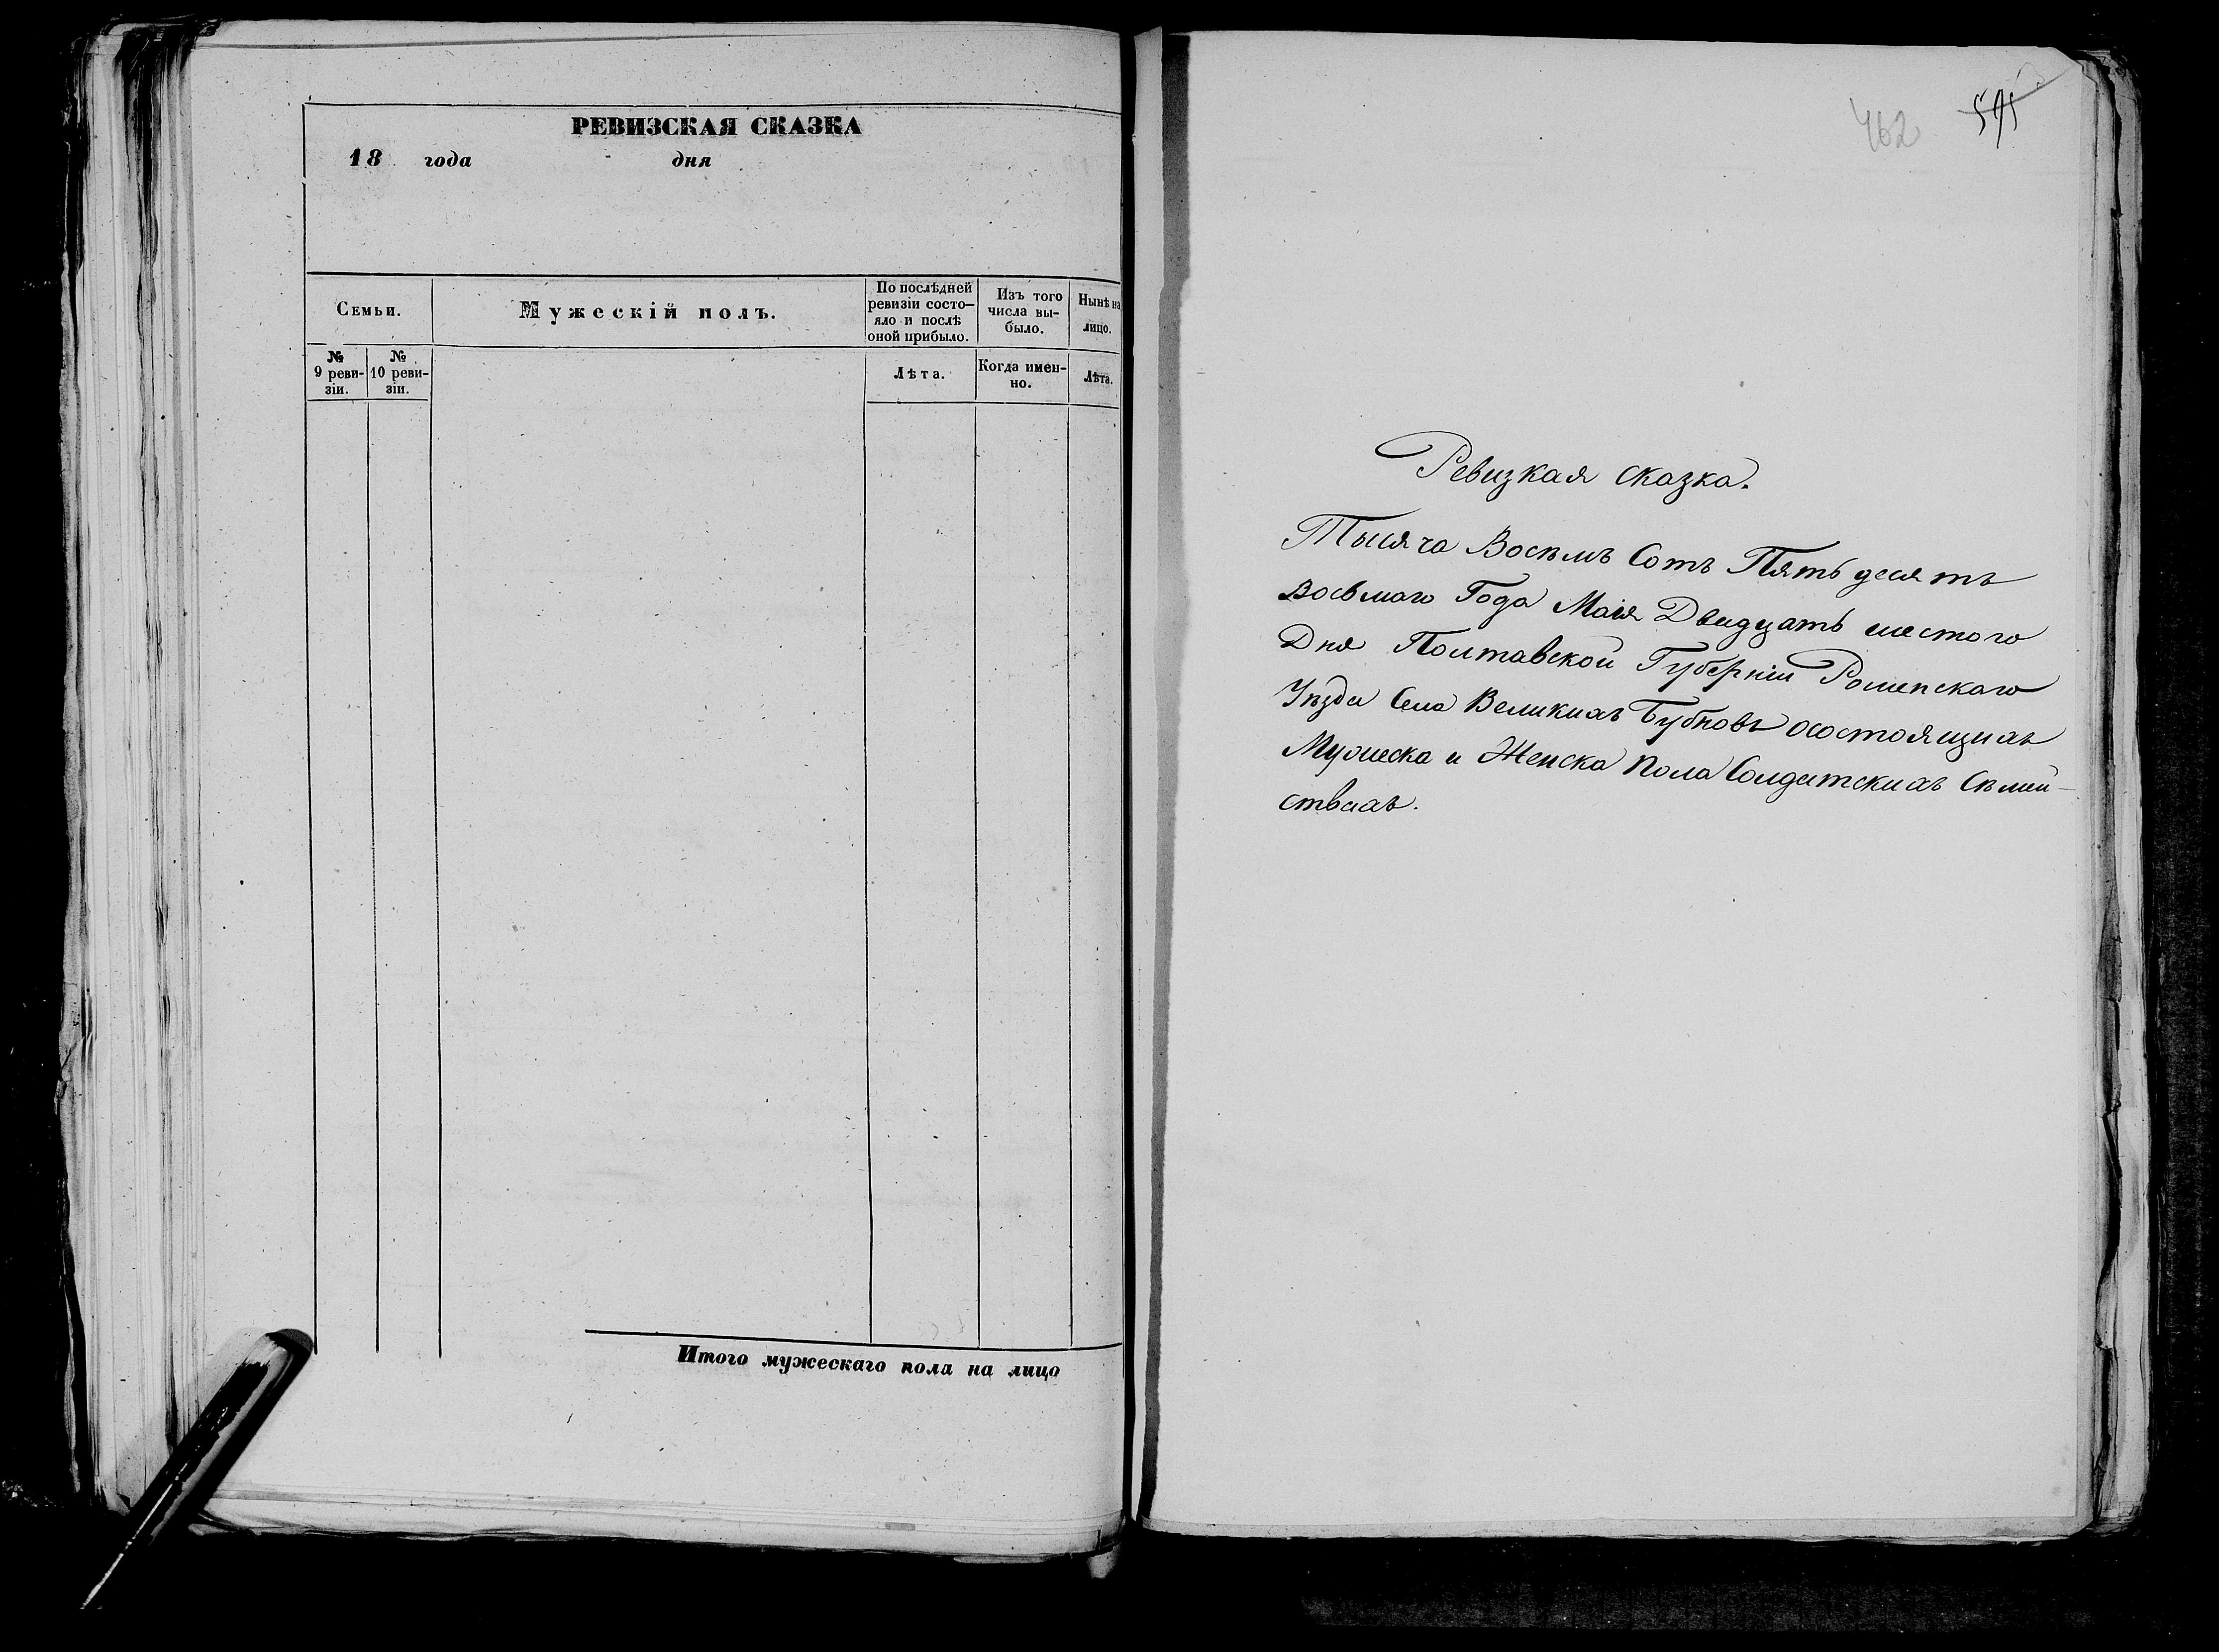 РЕВИЗСКАЯ СКАЗКА
18 года дня
Семьи.
Мужескій полъ.
По послѣдней
ревизіи состо-
яло и послѣ
оной прибыло.
Изъ того
числа вы-
было.
Нынѣ на
лицо.
№
9 реви-
зіи.
№
10 реви-
зіи.
Лѣта.
Когда имен-
но.
Лѣта.
Итого мужескаго пола на лицо
462
Ревизкая сказка.
Тысяча Восѣмъ Сотъ Пять десятъ
Восьмаго Года Маія Двадцать шестого
Дня Полтавской Губерніи Роменскаго
Уѣзда Села Великихъ Бубновъ осостоящихъ
Мужеска и Женска пола Солдатскихъ Сѣмей-
ствахъ.